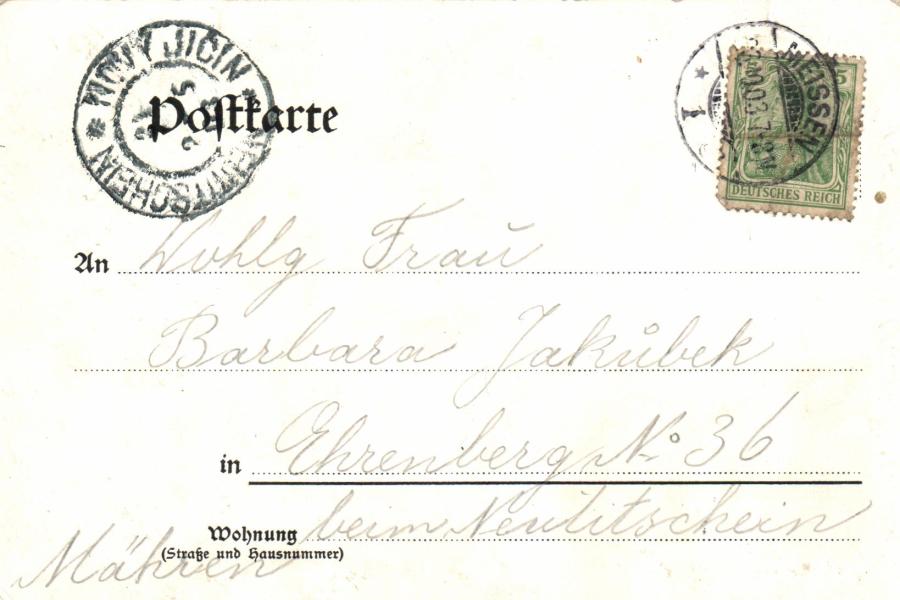 NOVÝ JIČÍN
NEUTITSCHEIN
Postkarte
MEISSEN
1
5
DEUTSCHES REICH
An Wohlg Frau
Barbara Jakůbek
in Ehrenberg No 36
Wohnung beim Neutitschein
(Straße und Hausnummer)
Mähren